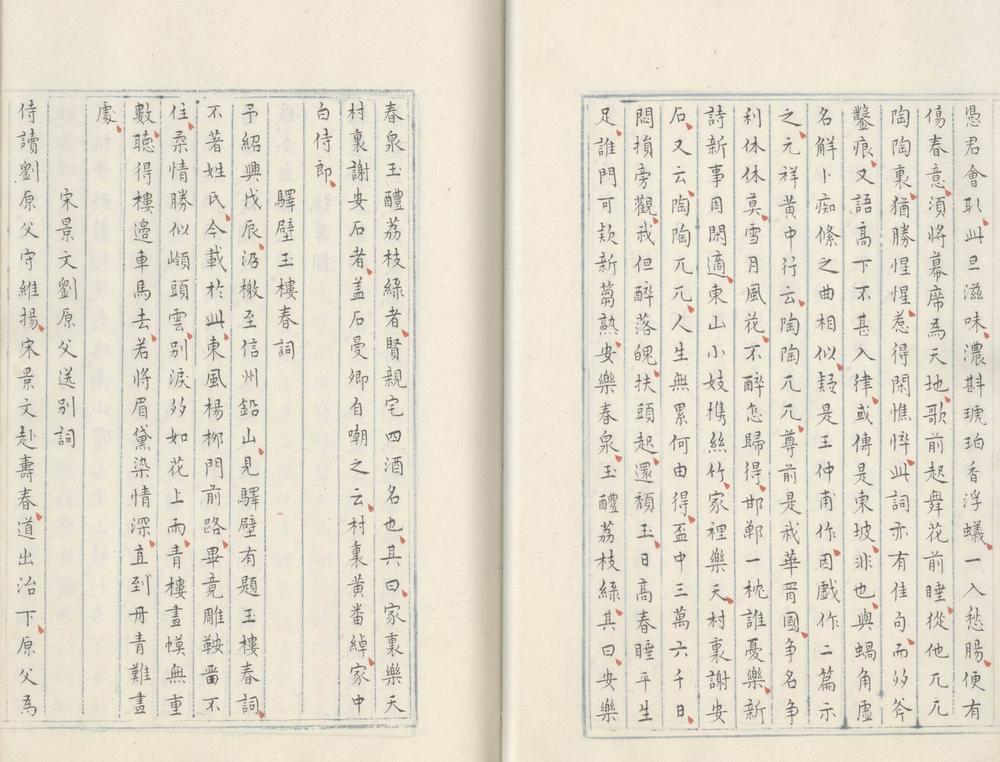 憑君會取此旦滋味濃斟琥珀香浮蟻一入愁腸便有
傷春意須將幕席為天地歌前起舞花前睡從他兀兀
陶陶裏猶勝惺惺惹得閑憔悴此詞亦有佳句而多斧
鑿痕又語高下不甚入律或傳是東坡非也與蝸角虛
名解卜痴絛之曲相似疑是王仲甫作因戲作二篇示
之元祥黃中行云陶陶兀兀尊前是我華胥國爭名爭
利休休莫雪月風花不醉怎歸得邯鄲一枕誰憂樂新
詩新事因閑適東山小妓携絲竹家裡樂天村裏謝安
石又云陶陶兀兀人生無累何由得盃中三萬六千日
悶損旁觀我但醉落魄扶頭起還頹玉日高春睡平生
足誰門可款新蒭熟安樂春泉玉醴荔枝綠其曰安樂
春泉玉醴荔枝綠者賢親宅四酒名也其曰家裏樂天
村裏謝安石者盖石曼卿自嘲之云村裏黃番綽家中
白侍郎
驛壁玉樓春詞
予紹興戊辰沿檄至信州鉛山見驛壁有題玉樓春詞
不著姓氏今載於此東風楊柳門前路畢竟雕鞍留不
住柔情勝似嶺頭雲別淚多如花上雨青樓畫幙無重
數聽得樓邊車馬去若將眉黛染情深直到丹青難畫
處
宋景文劉原父送別詞
侍讀劉原父守維揚宋景文赴壽春道出治下原父為